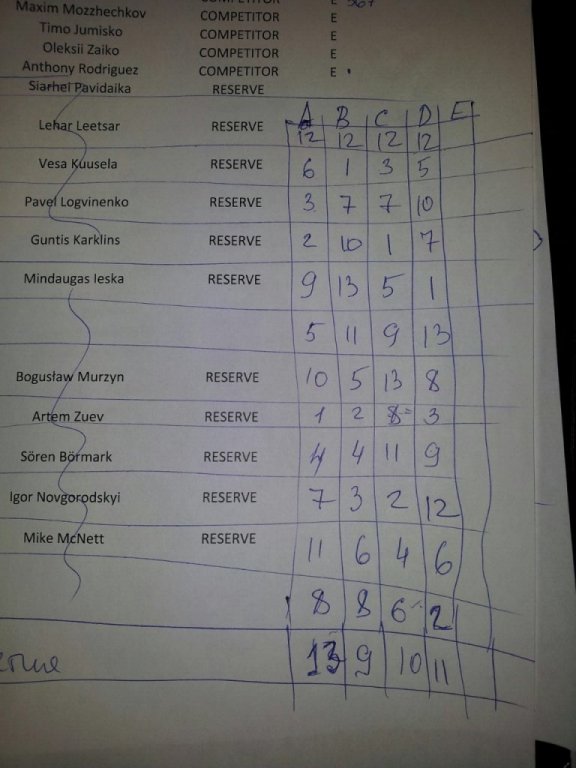 COMPETITOR E 567
Maxim Mozzhechkov COMPETITOR E
Timo Jumisko COMPETITOR E
Oleksii Zaiko COMPETITOR E
Anthony Rodriguez COMPETITOR E
Siarhei Pavidaika RESERVE
A B C D E
Lehar Leetsar RESERVE 12 12 12 12
Vesa Kuusela RESERVE 6 1 3 5
Pavel Logvinenko RESERVE 3 7 7 10
Guntis Karklins RESERVE 2 10 1 7
Mindaugas Ieska RESERVE 9 13 5 1
5 11 9 13
Bogusław Murzyn RESERVE 10 5 13 8
Artem Zuev RESERVE 1 2 8 3
Sören Börmark RESERVE 4 4 11 9
Igor Novgorodskyi RESERVE 7 3 2 12
Mike McNett RESERVE 11 6 4 6
8 8 6 2
13 9 10 11